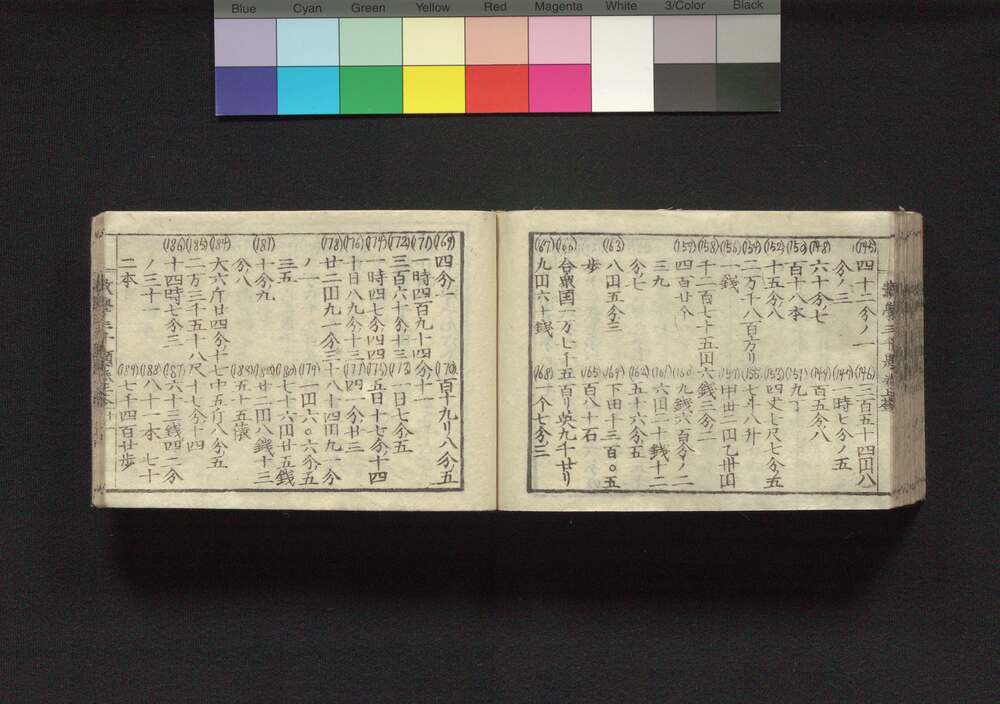 Blue Cyan Green Yellow Red Magenta White 3/Color Black
(145) 四十二分ノ一 (146) 二百五十四円八
分ノ三 (147) 一時七分ノ五
(148) 六十分七 (149) 百五分八
(150) 百十八本 (151) 九丁
(152) 十五分八 (153) 四丈七尺七分五
二万千八百方リ (155) 七斗八升
(156) 一銭 (157) 甲廿一円乙卅円
(158) 千二百七十五円六銭三分二
(159) 四百廿个 (160) 九銭六百分ノ二
三九 (161) 六円二十銭十二
分七 (162) 五十六分五
(163) 八円五分三 (164) 下田十三百〇五
歩 (165) 百八十石
(166) 合衆国一万七千五百リ英九千廿リ
(167) 九円六十銭 (168) 一个七分三
(169) 四分一 (170) 百十九リ八分五
(171) 一時四百九十四分十一
(172) 三百六十分十三 (173) 一日七分五
(174) 一時四七分四四 (175) 五日十七分十四
(176) 十日八九分十三 (177) 四一分廿三
(178) 廿二円九一分三十八十四円九一分
ノ一 (179) 一円六〇六分五
三五 (180) 七十六円廿五銭
(181) 十分九 (182) 廿二円八銭十三
分八 (183) 五十五俵
(184) 大六斤廿四分十七中五斤八分五
(185) 二万三千五十八尺十七分十四
(186) 十四時七分三 (187) 六十三銭四二分
ノ三十一 (188) 八十一本七十
二本 (189) 七千四百廿歩